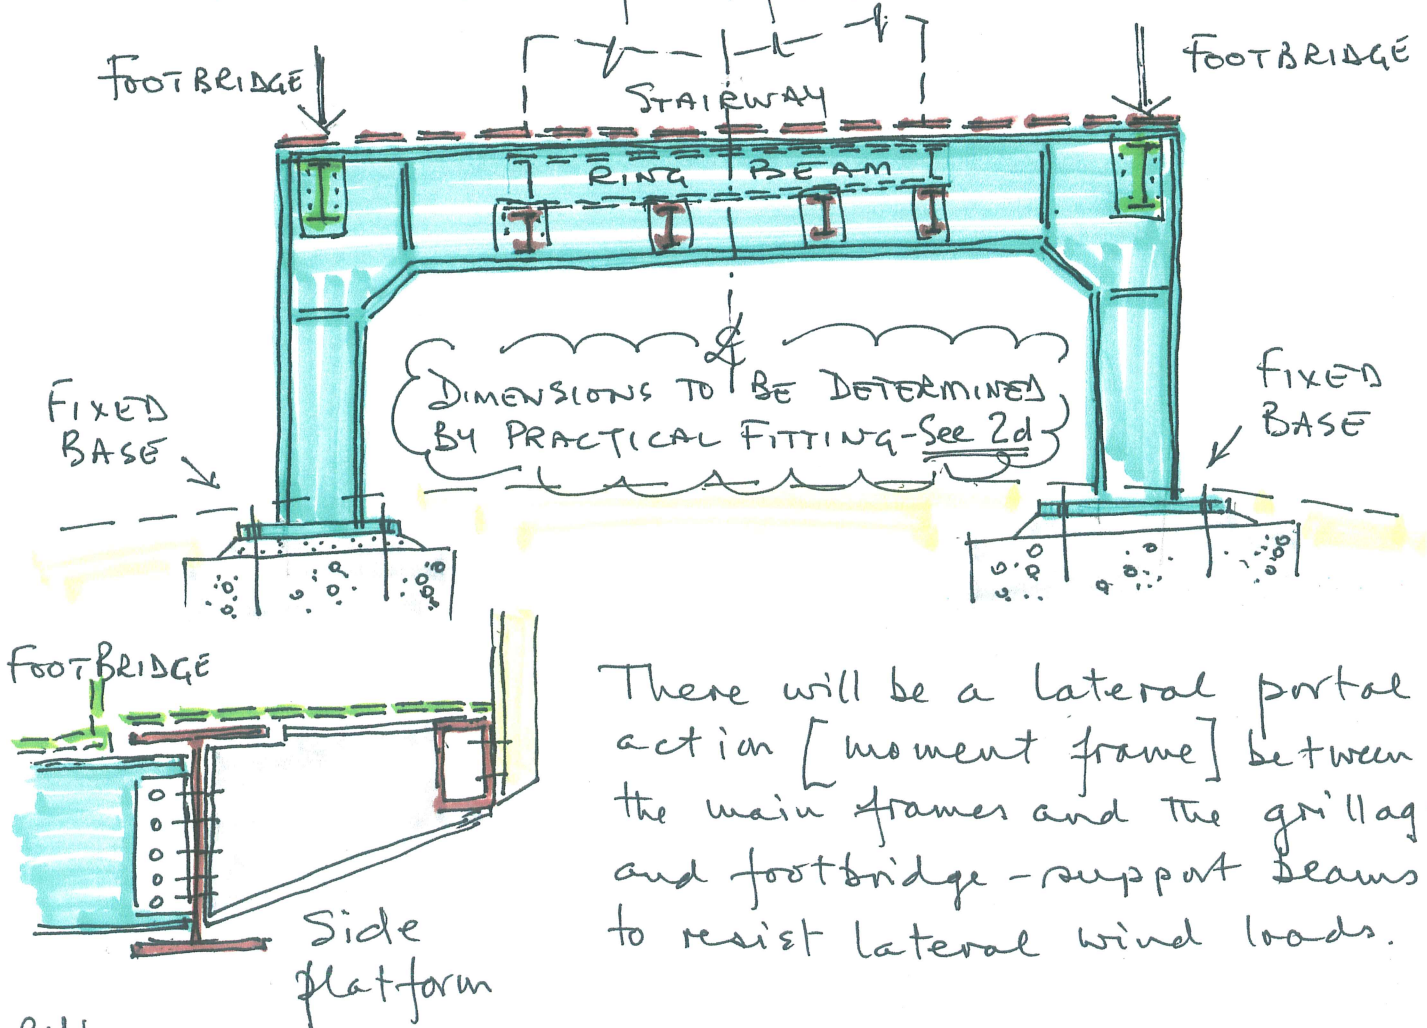 FOOTBRIDGE
FOOTBRIDGE
STAIRWAY
RING BEAM
℄
DIMENSIONS TO BE DETERMINED
BY PRACTICAL FITTING-See 2d
FIXED
BASE
FIXED
BASE
FOOTBRIDGE
There will be a lateral portal
action [moment frame] between
the main frames and the grillag
and footbridge-support beams
to resist lateral wind loads.
Side
platform